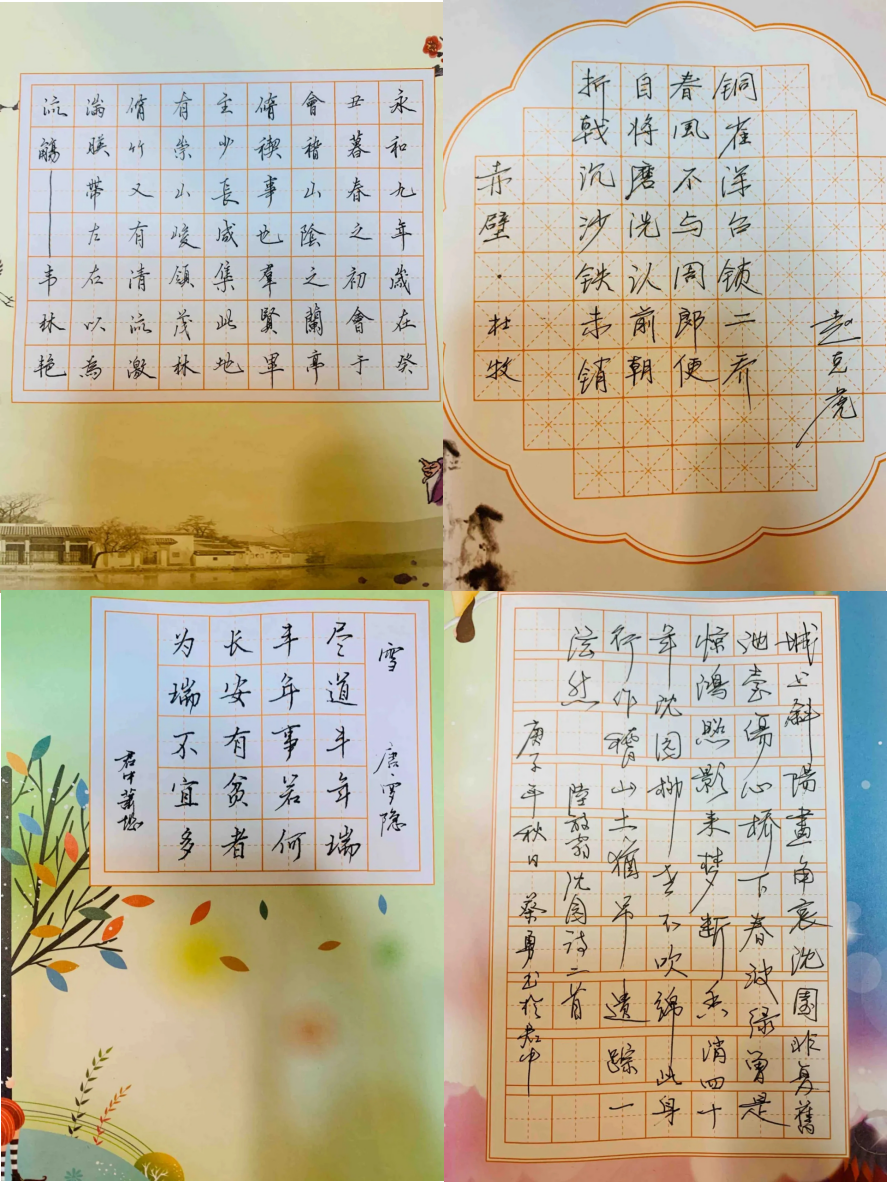 永和九年歲在癸
丑暮春之初會于
會稽山陰之蘭亭
脩禊事也羣賢畢
至少長咸集此地
有崇山峻領茂林
脩竹又有清流激
湍暎帶左右以為
流觴——韦林艳
铜雀深台锁二乔
春風不与周郎便
自将磨洗认前朝
折戟沉沙铁未销
赤壁·杜牧
赵克虎
雪 唐·罗隐
尽道丰年瑞
丰年事若何
长安有贫者
为瑞不宜多
君中萧
城上斜陽畫角哀沈園非复舊
池臺傷心橋下春波绿曾是
惊鴻照影来梦断香消四十
年沈园柳老不吹綿此身
行作稽山土猶吊遺踪一
泫然 陸放翁沈園诗二首
庚子年秋日 蔡勇书於君中